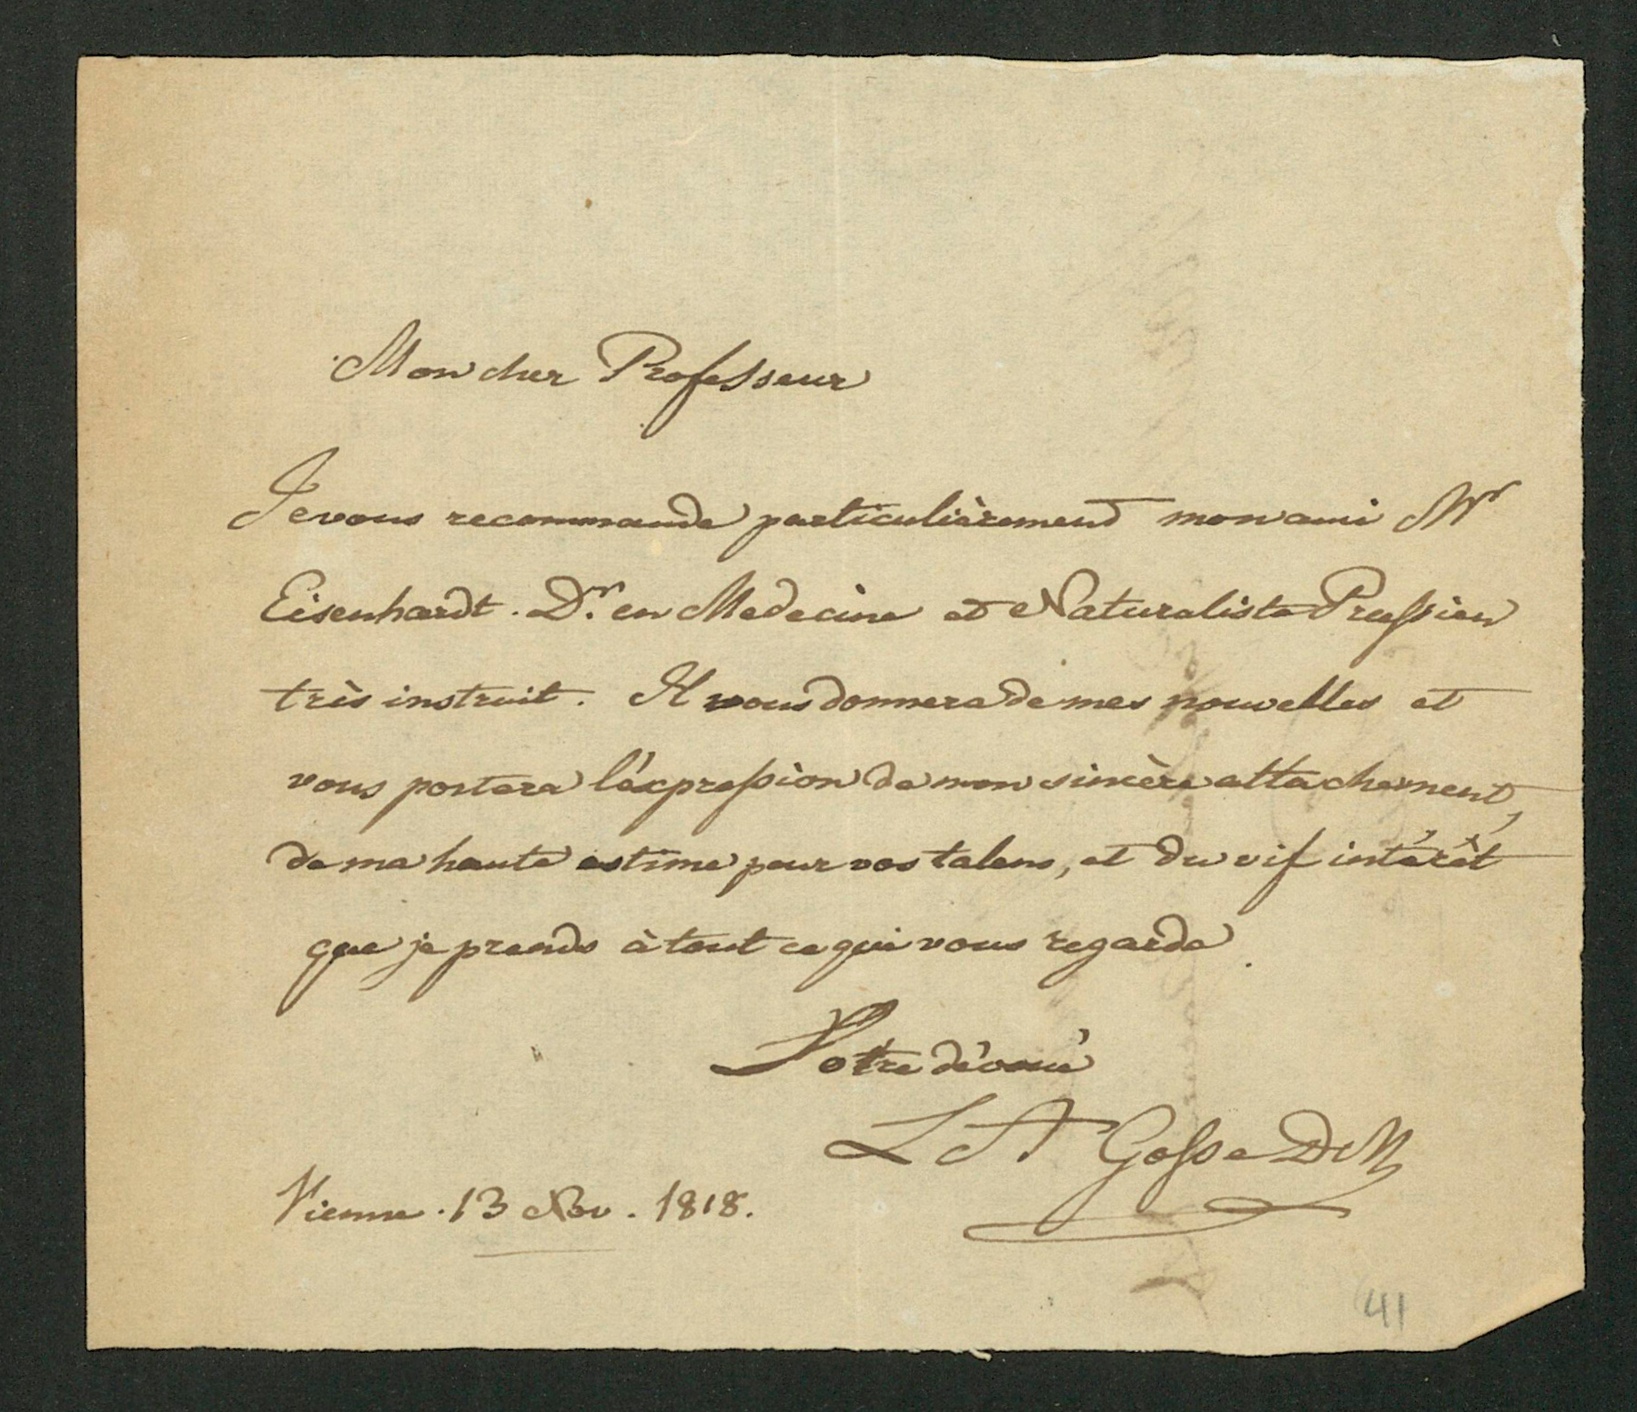 Mon cher Professeur
Je vous recommande particulièrement mon ami Mr
Eisenhardt. Dr. en Medecine et Naturaliste Prussien
très instruit. Il vous donnera de mes nouvelles et
vous portera l'éxpression de mon sincère attachement,
de ma haute estime pour vos talens, et du vif intérêt
que je prends à tout ce qui vous regarde.
Votre dévoué
L A Gosse DM
Vienne. 13 Nov. 1818.
41